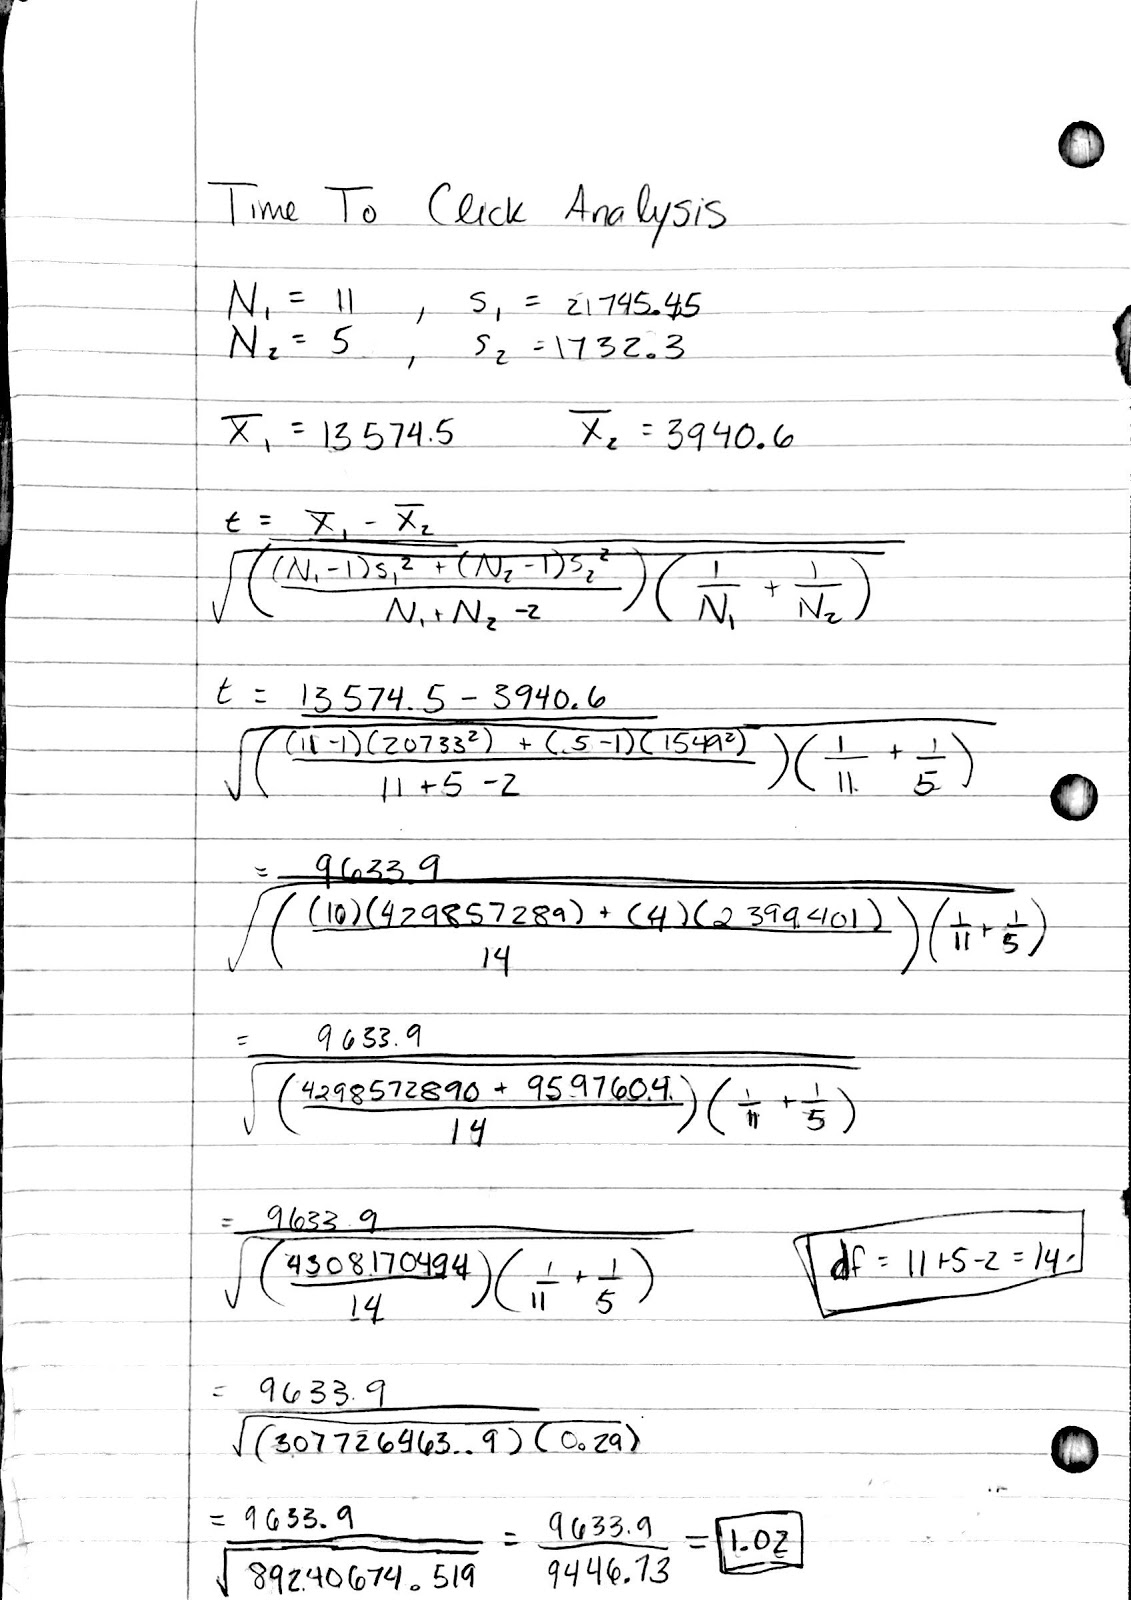 Time To Click Analysis
N₁ = 11 , s₁ = 21745.45
N₂ = 5 , s₂ = 1732.3
x̄₁ = 13574.5 x̄₂ = 3940.6
t = x̄₁ - x̄₂
√(((N₁-1)s₁² + (N₂-1)s₂²)/(N₁+N₂-2))(1/N₁ + 1/N₂)
t = 13574.5 - 3940.6
√(((11-1)(20733²) + (5-1)(1549²))/(11+5-2))(1/11 + 1/5)
= 9633.9
√(((10)(429857289) + (4)(2399401))/14)(1/11 + 1/5)
= 9633.9
√((4298572890 + 9597604)/14)(1/11 + 1/5)
= 9633.9
√((4308170494)/14)(1/11 + 1/5) df = 11+5-2 = 14.
= 9633.9
√(307726463.9)(0.29)
= 9633.9/√89240674.519 = 9633.9/9446.73 = 1.02